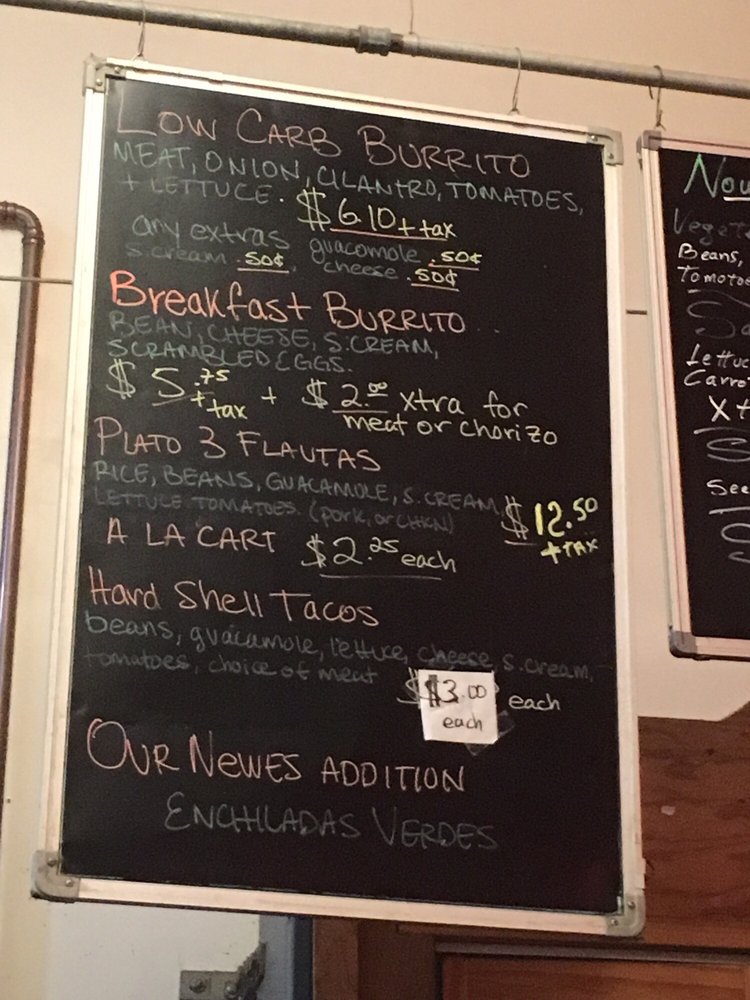 LOW CARB BURRITO
MEAT, ONION, CILANTRO, TOMATOES,
+ LETTUCE. $6.10 + tax
any extras guacomole .50¢
s.cream .50¢, cheese .50¢
Breakfast BURRITO
BEAN, CHEESE, S.CREAM,
SCRAMBLED EGGS.
$5.75 + tax + $2.00 xtra for
meat or chorizo
PLATO 3 FLAUTAS
RICE, BEANS, GUACAMOLE, S.CREAM,
LETTUCE TOMATOES. (PORK, OR CHKN) $12.50
+ TAX
A LA CART $2.25 each
Hard Shell Tacos
beans, guacamole, lettuce, cheese, s.cream,
tomatoes, choice of meat
$3.00 each
each
OUR NEWES ADDITION
ENCHILADAS VERDES
Beans,
Lettuc
Carro
See